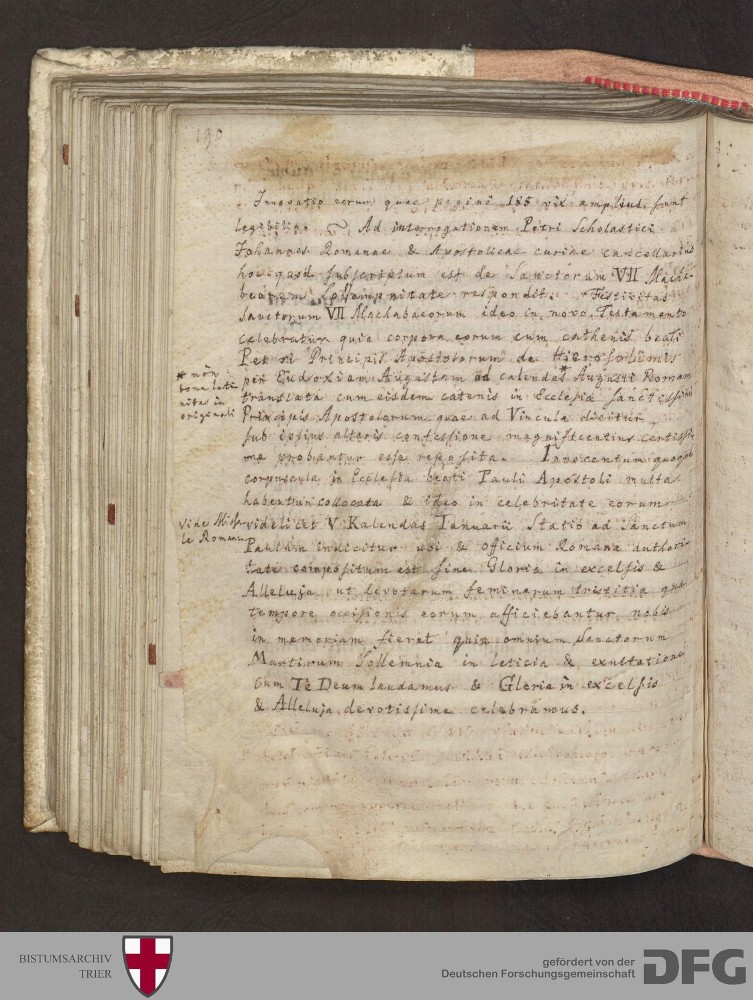 190
Innovatio eorum quae pagina 188 vix amplius sunt
legibilia. Ad interrogationem Petri Scholastici
Johannes Romanae & Apostolicae curiae cancellarius
hoc quod subscriptum est de Sanctorum VII Macha-
beorem Sollempnitate respondit. Festivitas
Sanctorum VII Machabaeorum ideo in novo Testamento
celebratur quia corpora eorum cum cathenis beati
Petri Principis Apostolorum de Hierosolumis
* non
bona lati
nitas in
originali
per Eudoxiam Augustam ad calendas* Augusti Romam
translata cum eisdem catenis in Ecclesia sanctissimi
Principis Apostolorum quae ad Vincula dicitur
sub ipsius altaris confessione magnificentius certissi-
me probantur esse reposita. Innocentum quoque
corpuscula in Ecclesia beati Pauli Apostoli multa
habentur collocata & ideo in celebritate eorum
Vide Missa-
le Romanum
videlicet V Kalendas Ianuarii Statio ad Sanctum
Paulum indicitur ubi & officium Romana authori-
tate compositum est sine Gloria in excelsis &
Alleluja ut devotarum feminarum tristitia qua
tempore occisionis eorum afficiebantur nobis
in memoriam fieret quia omnium Sanctorum
Martirum Sollemnia in leticia & exultatione
cum Te Deum laudamus & Gloria in excelsis
& Alleluja devotissime celebramus.
BISTUMSARCHIV
TRIER
gefördert von der
Deutschen Forschungsgemeinschaft
DFG